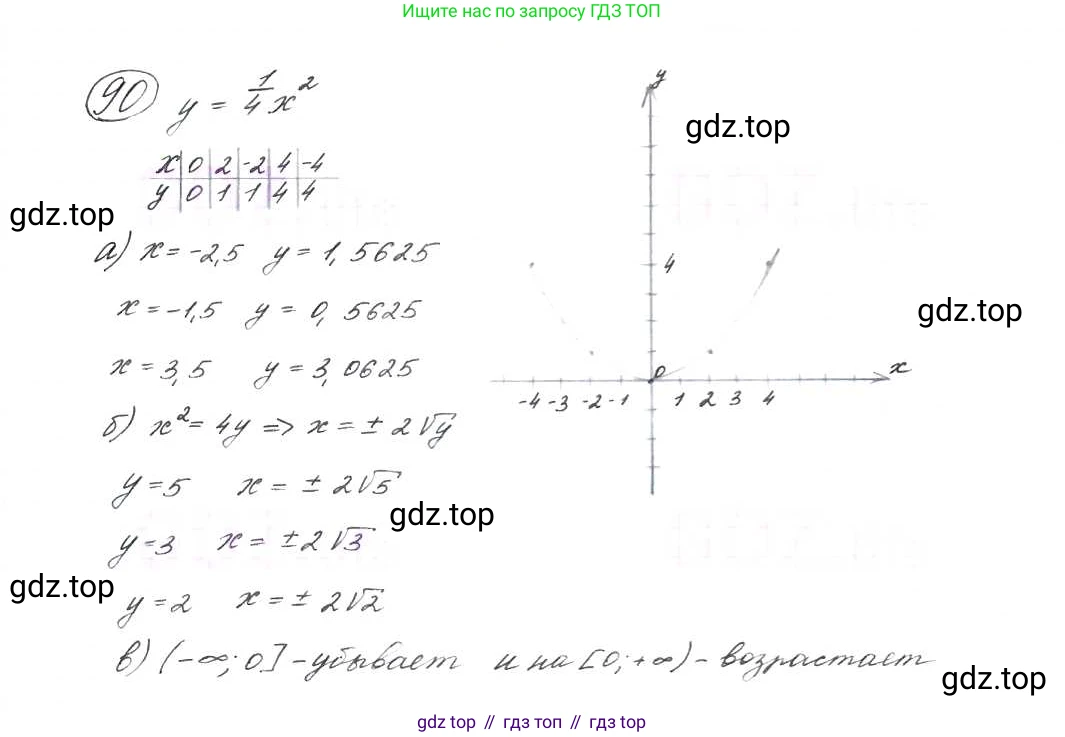 Ищите нас по запросу ГДЗ ТОП
90 y = 1/4 x²
x | 0 | 2 | -2 | 4 | -4
y | 0 | 1 | 1 | 4 | 4
а) x = -2,5 y = 1,5625
x = -1,5 y = 0,5625
x = 3,5 y = 3,0625
б) x² = 4y => x = ± 2√y
y = 5 x = ± 2√5
y = 3 x = ± 2√3
y = 2 x = ± 2√2
в) (-∞; 0] - убывает и на [0; +∞) - возрастает
y
4
0
x
-4 -3 -2 -1 1 2 3 4
gdz.top
gdz.top
gdz.top
gdz.top
gdz.top
gdz.top
gdz top // гдз топ // гдз top